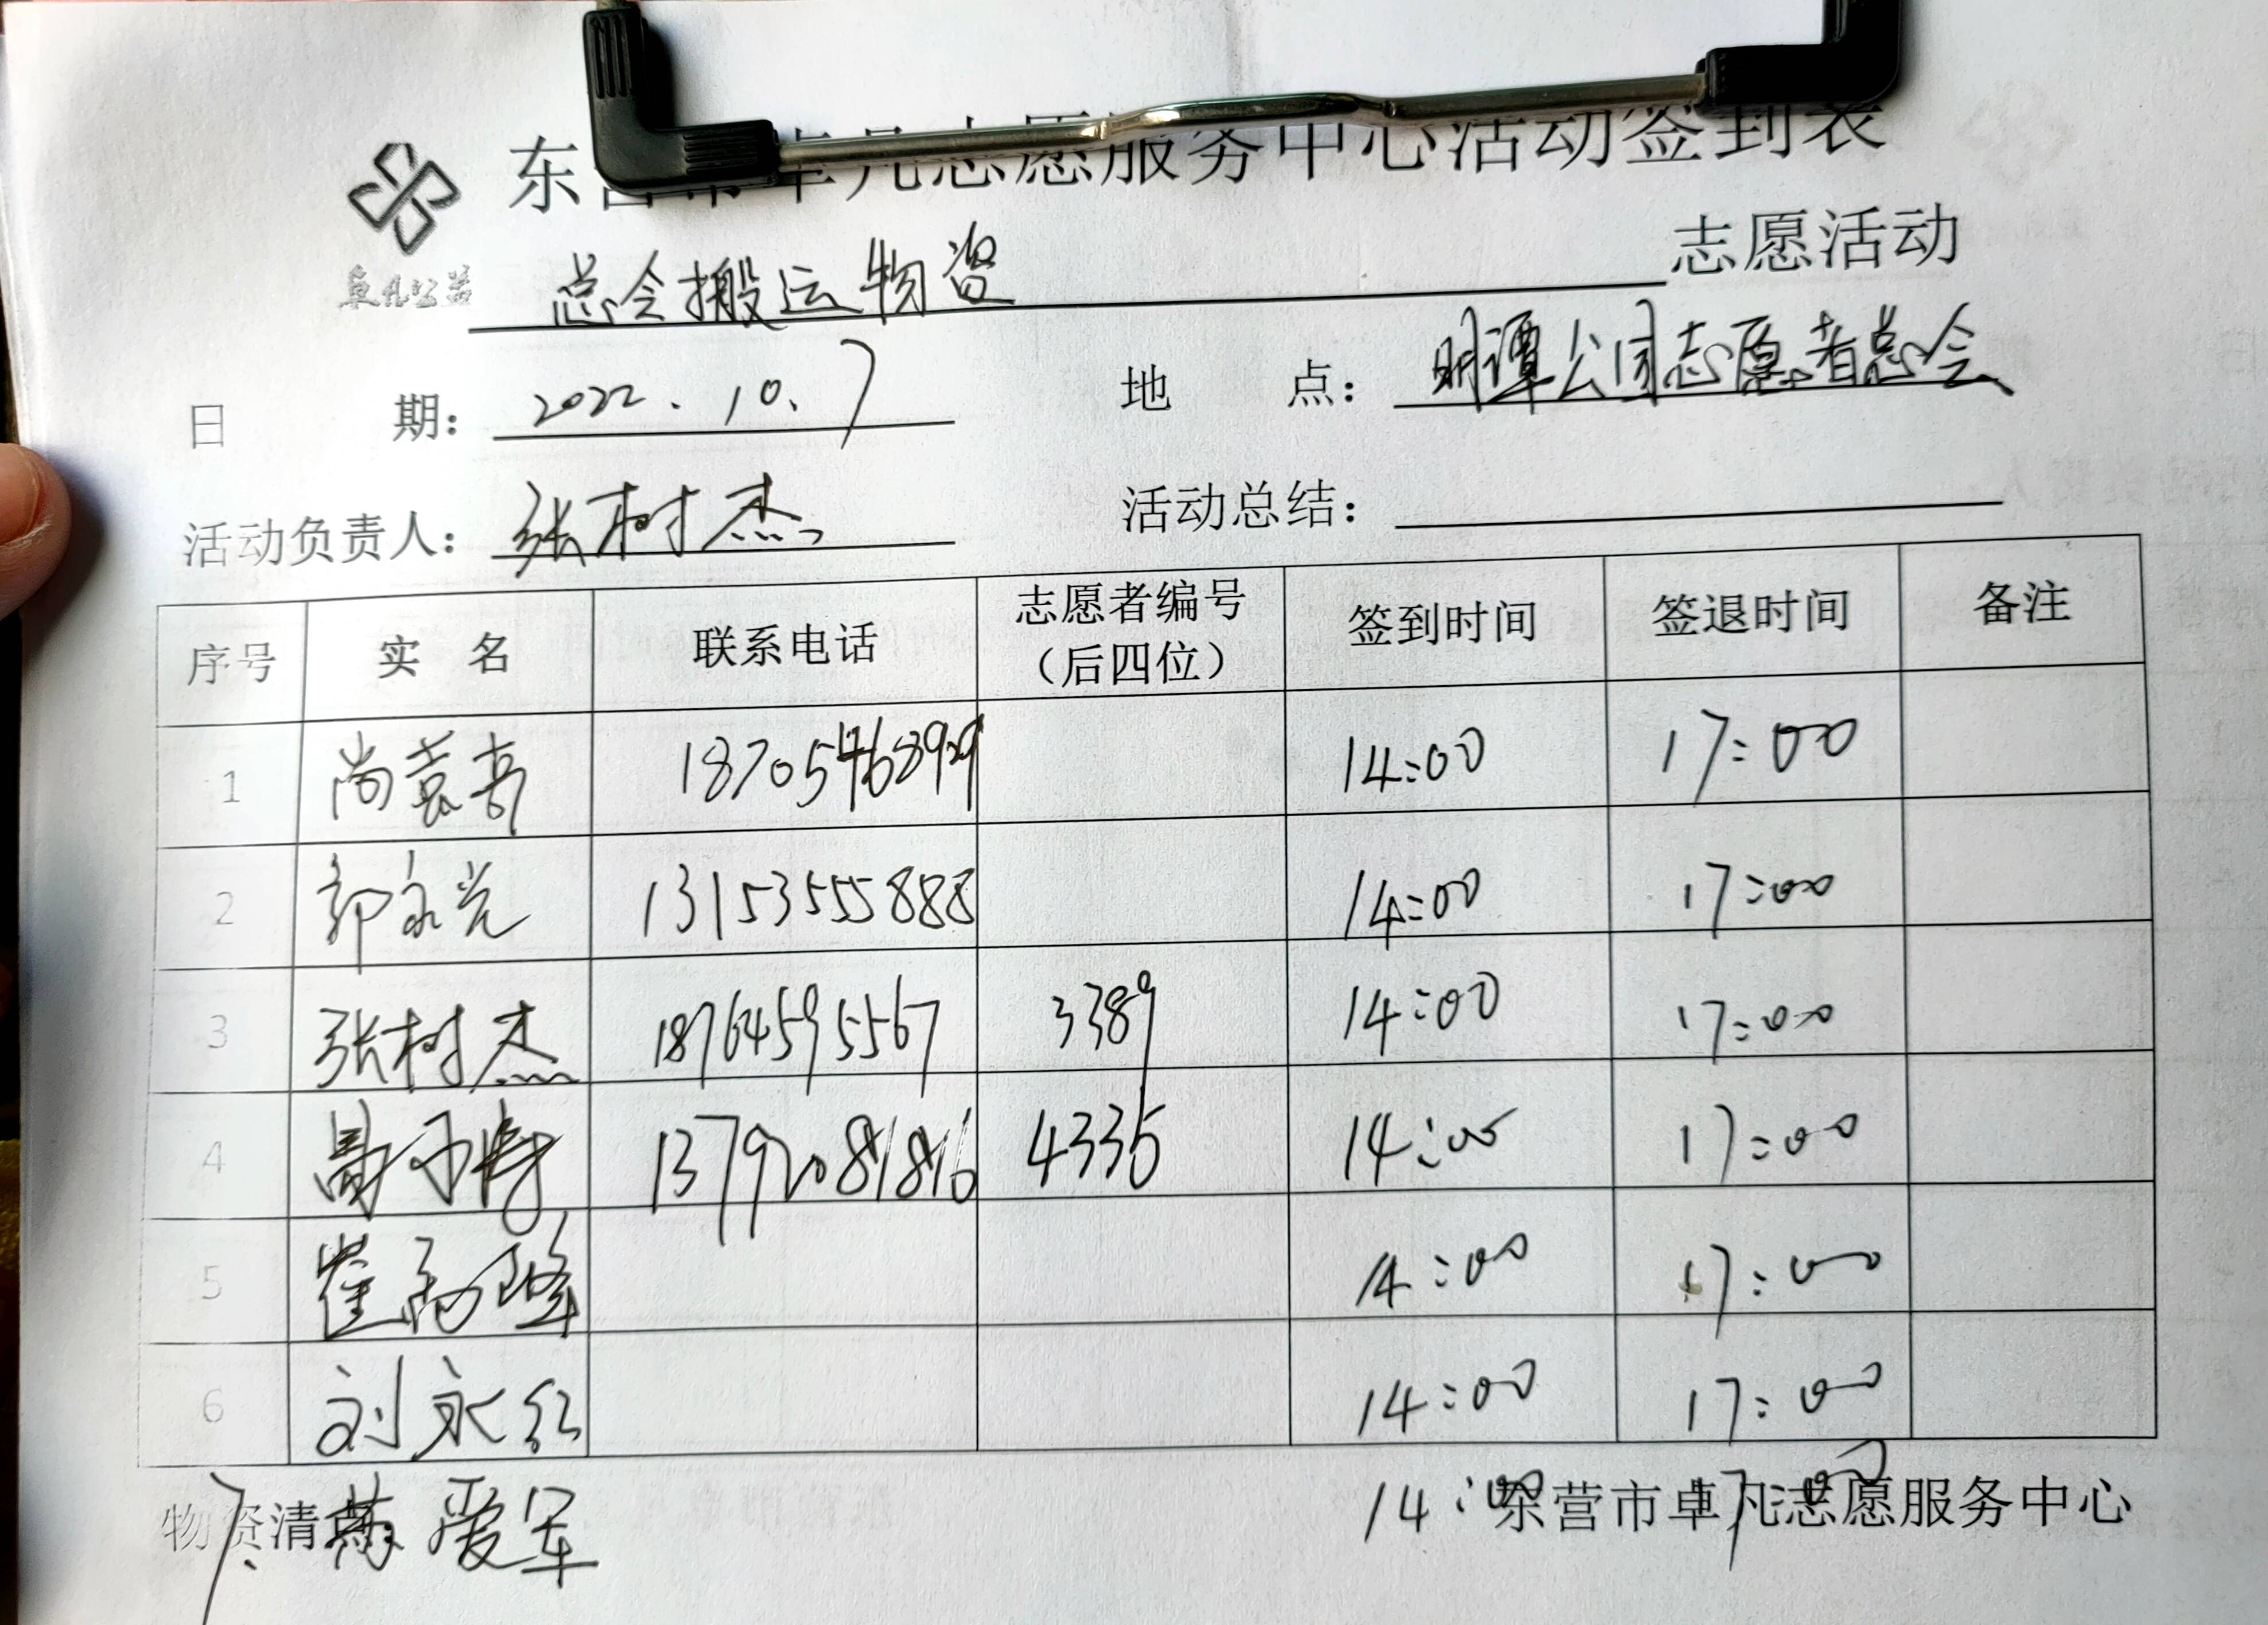 东营市卓凡志愿服务中心活动签到表
卓凡公益
总会搬运物资 志愿活动
日 期： 2022.10.7 地 点： 明潭公园志愿者总会
活动负责人： 张树杰 活动总结：
序号 实 名 联系电话 志愿者编号（后四位） 签到时间 签退时间 备注
1 尚 18705468929 14:00 17:00
2 郭永光 13153555888 14:00 17:00
3 张树杰 18764595567 3389 14:00 17:00
4 13792081816 4335 14:00 17:00
5 崔 峰 14:00 17:00
6 刘永红 14:00 17:00
物资清 东营市卓凡志愿服务中心
7. 蒋爱军 14:00 17:00